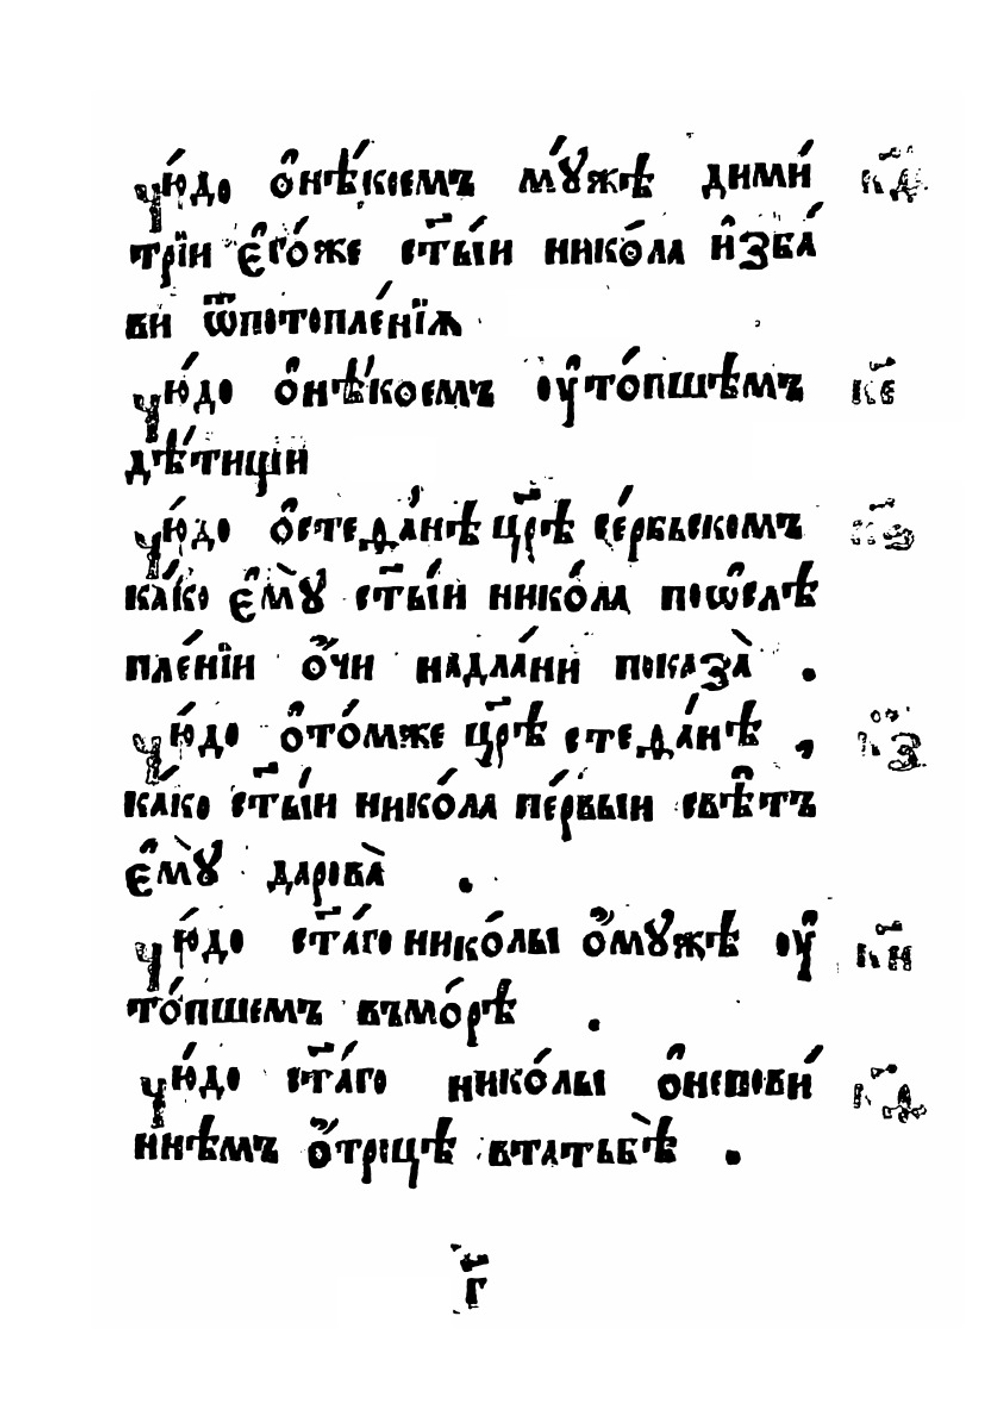 чю́до о҆нѣ́коемъ мꙋ́жѣ дими́ к҃д
трїи є҆го́же ст҃ы́и нико́ла и҆зба́
ви ѿпотопле́нїѧ
чю́до о҆нѣ́коемъ оу҆то́пшѣмъ к҃е
дѣ́тищи
чю́до о҆стеѳа́нѣ цр҃ѣ се́рбьскомъ к҃ѕ
ка́ко є҆мꙋ̀ ст҃ы́и нико́ла поѡ҆слѣ
пле́нїи о҆́чи надла́ни показа̀ .
чю́до о҆то́мже цр҃ѣ стеѳа́нѣ , к҃з
ка́ко ст҃ы́и нико́ла пе́рвыи свѣ҆тъ
є҆мꙋ̀ дарова̀ .
чю́до ст҃а́го нико́лы о҆́мꙋжѣ оу҆ к҃и
то́пшемъ вымо́рѣ .
чю́до ст҃а́го нико́лы о҆непови́ к҃ѳ
ннѣмъ о҆́троцѣ втатьбѣ̀ .
г҃